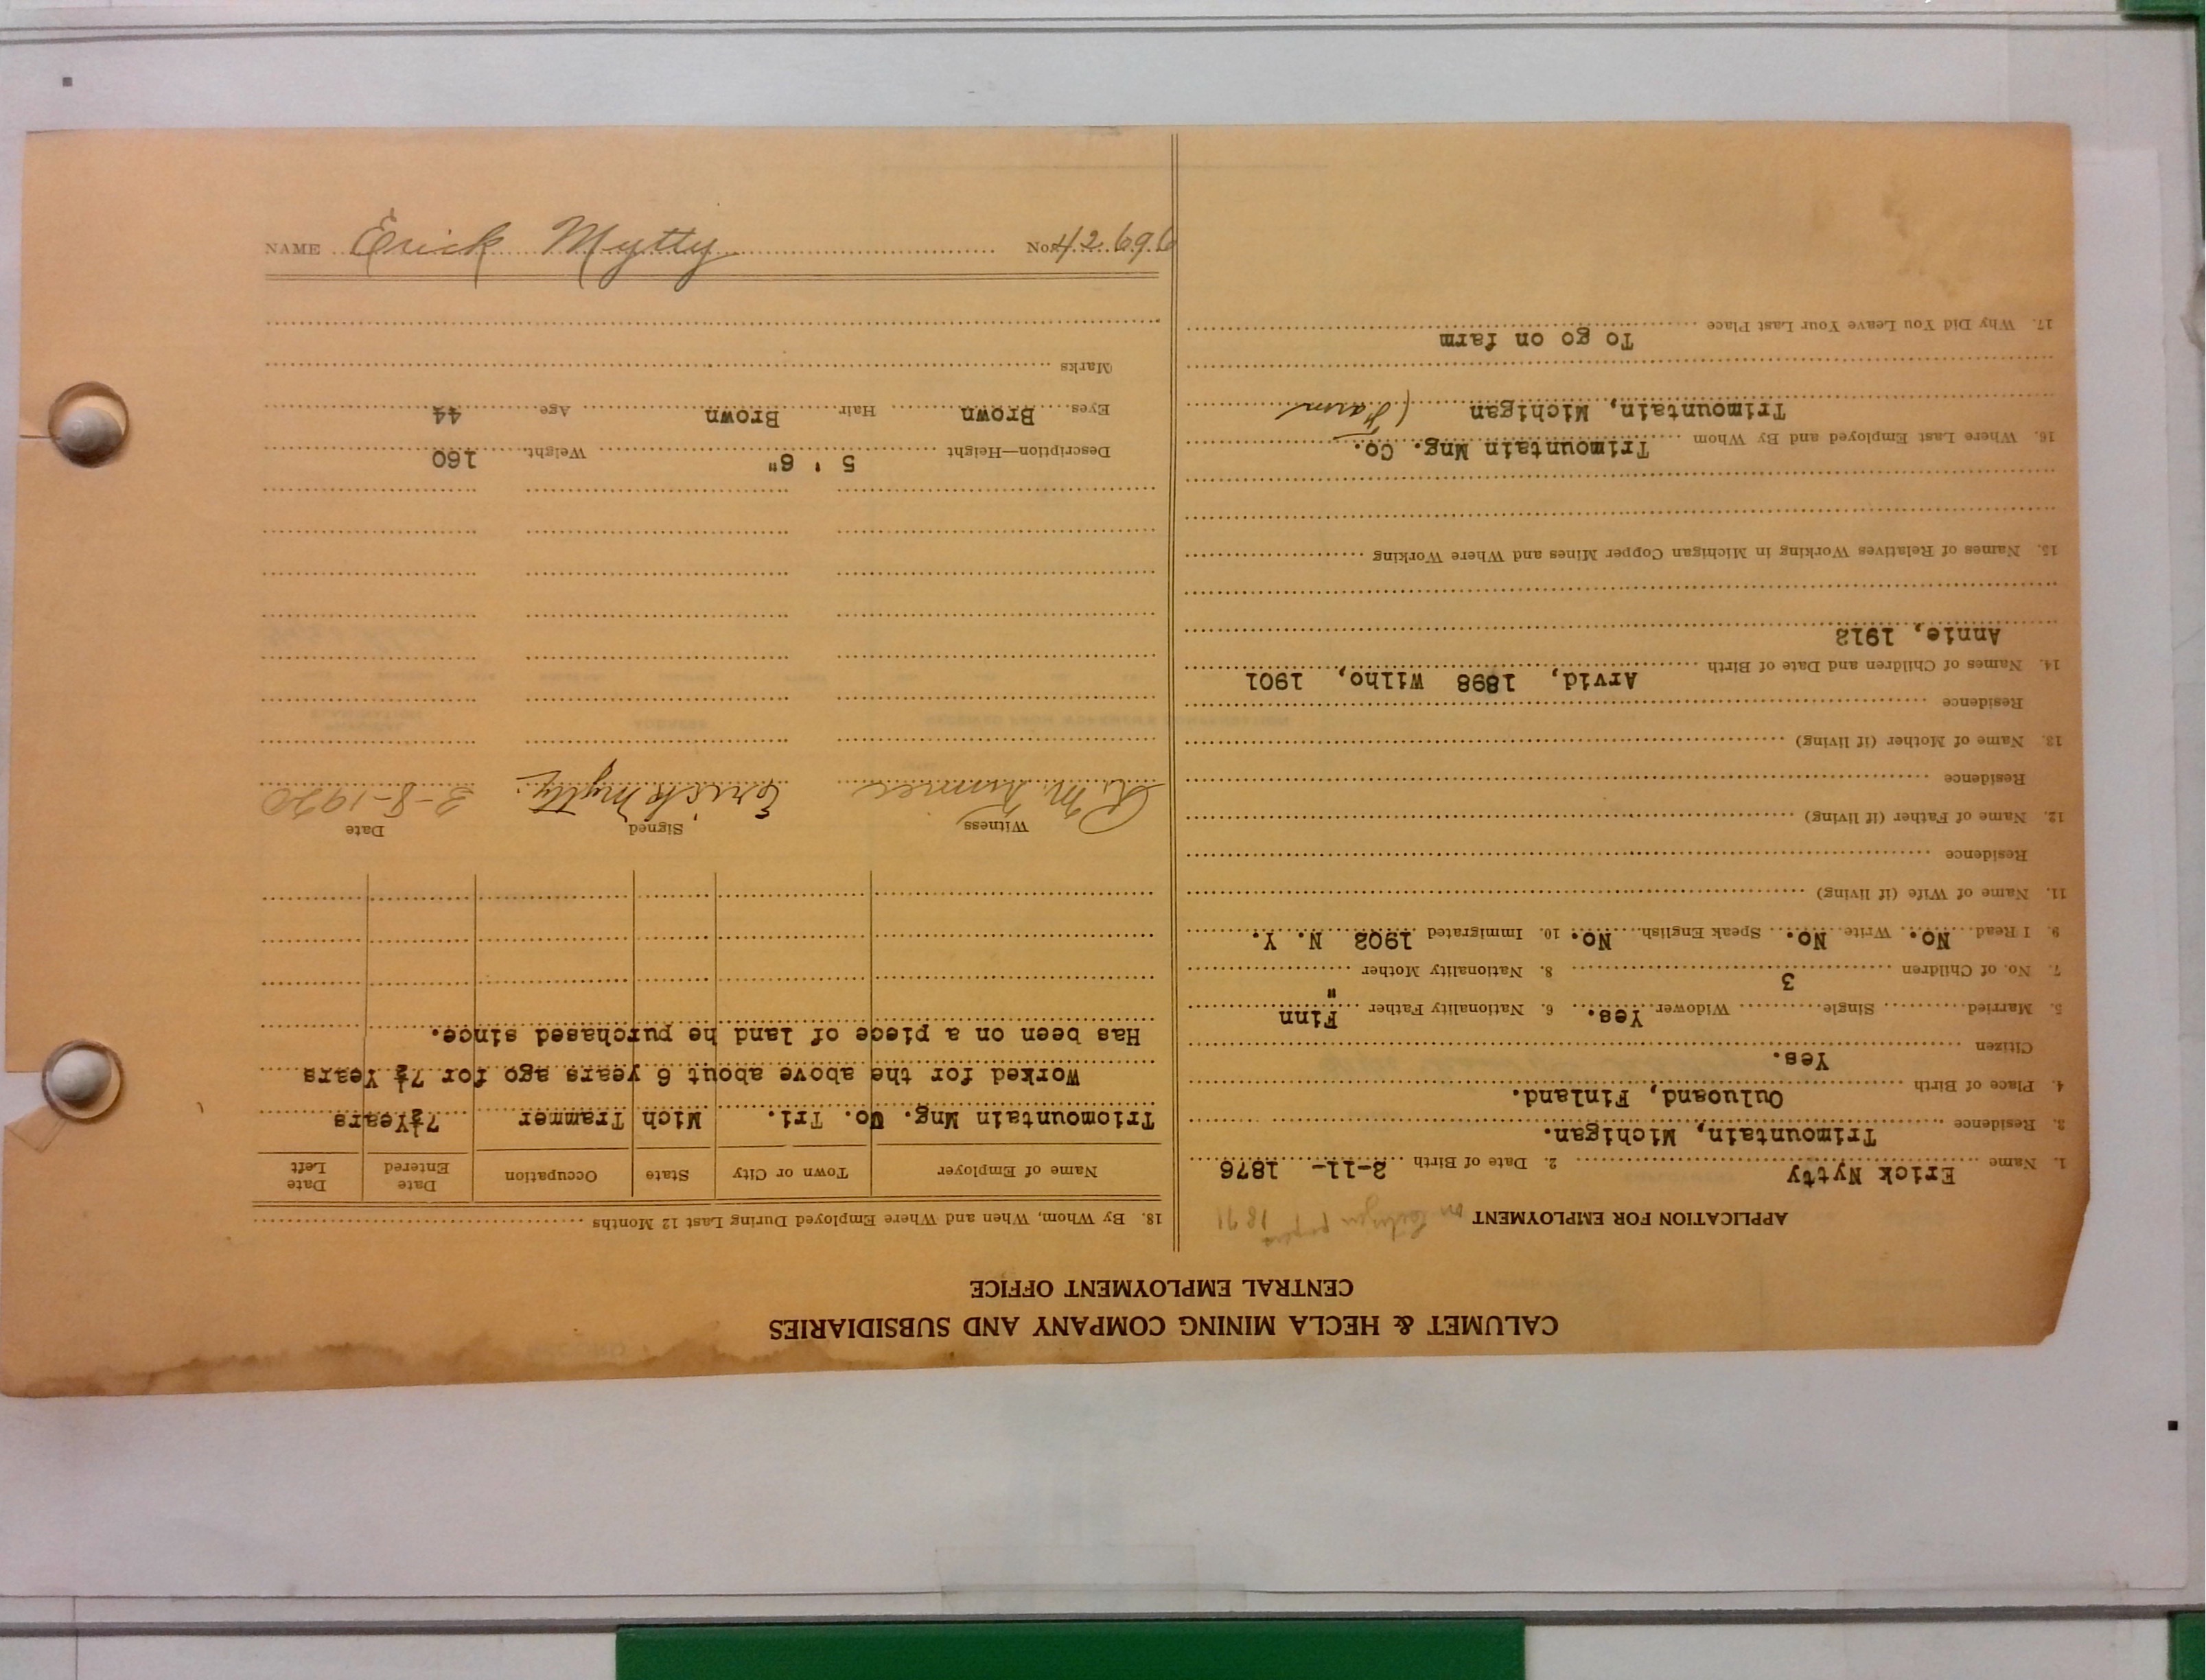 CALUMET & HECLA MINING COMPANY AND SUBSIDIARIES
CENTRAL EMPLOYMENT OFFICE
APPLICATION FOR EMPLOYMENT on papers 1871
1. Name Erick Nytty 2. Date of Birth 2-11- 1876
3. Residence Trimountain, Michigan.
4. Place of Birth Ouluoand, Finland.
Citizen Yes.
5. Married Single Widower Yes. 6. Nationality Father Finn
7. No. of Children 3 8. Nationality Mother "
9. I Read No. Write No. Speak English No. 10. Immigrated 1902 N. Y.
11. Name of Wife (if living)
Residence
12. Name of Father (if living)
Residence
13. Name of Mother (if living)
Residence
14. Names of Children and Date of Birth Arvid, 1898 Wilho, 1901
Annie, 1912
15. Names of Relatives Working in Michigan Copper Mines and Where Working
16. Where Last Employed and By Whom Trimountain Mng. Co.
Trimountain, Michigan (Farm
17. Why Did You Leave Your Last Place To go on farm
18. By Whom, When and Where Employed During Last 12 Months
Name of Employer Town or City State Occupation Date Entered Date Left
Triomountain Mng. Co. Tri. Mich Trammer 7½Years
Worked for the above about 6 years ago for 7½ Years
Has been on a piece of land he purchased since.
Witness Signed Date
R. M. Erick Mytty. 2-8-1920
Description—Height 5 ' 6" Weight 160
Eyes Brown Hair Brown Age 44
Marks
NAME Erick Mytty No. 42696